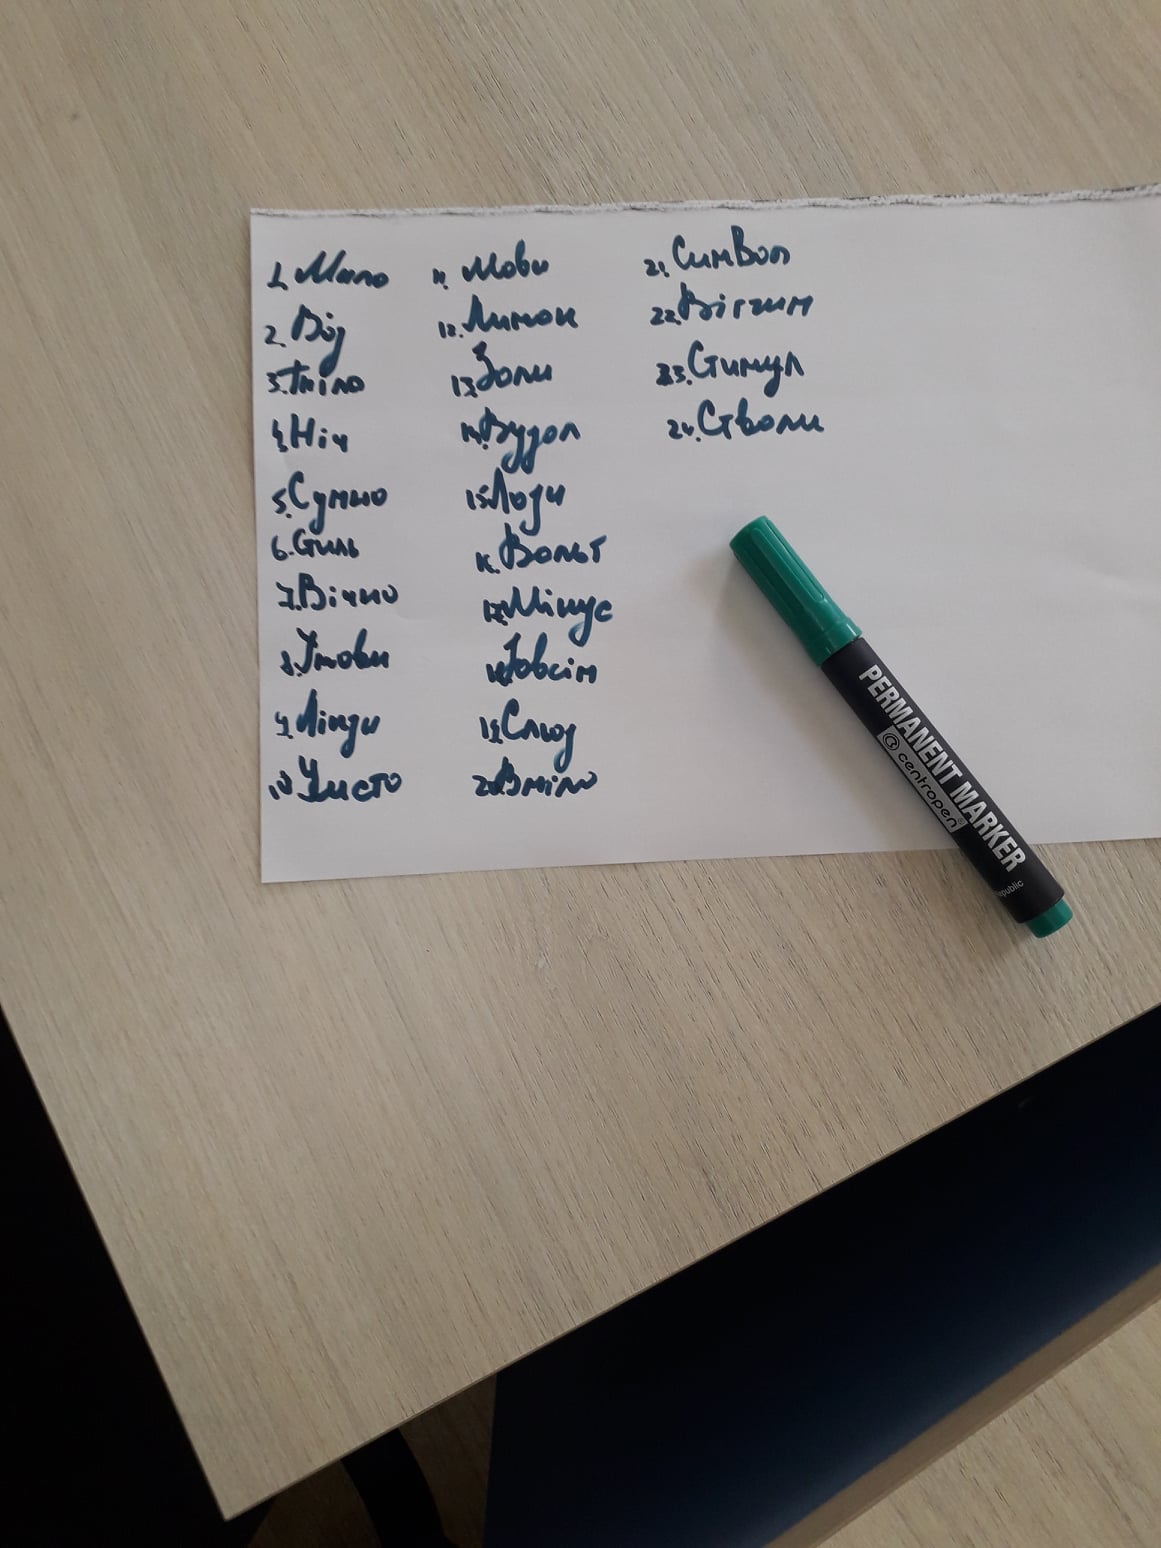 1. Мило
2. Від
3. Тіло
4. Ніч
5. Сумно
6. Стиль
7. Вічно
8. Умови
9.
10. Чисто
11. Мови
12. Лимон
13. Золи
14.
15. Люди
16. Вольт
17. Мінус
18. Зовсім
19. Слюд
20. Вміло
21. Символ
22. Вігтим
23. Стимул
24. Стволи
PERMANENT MARKER
centropen
republic